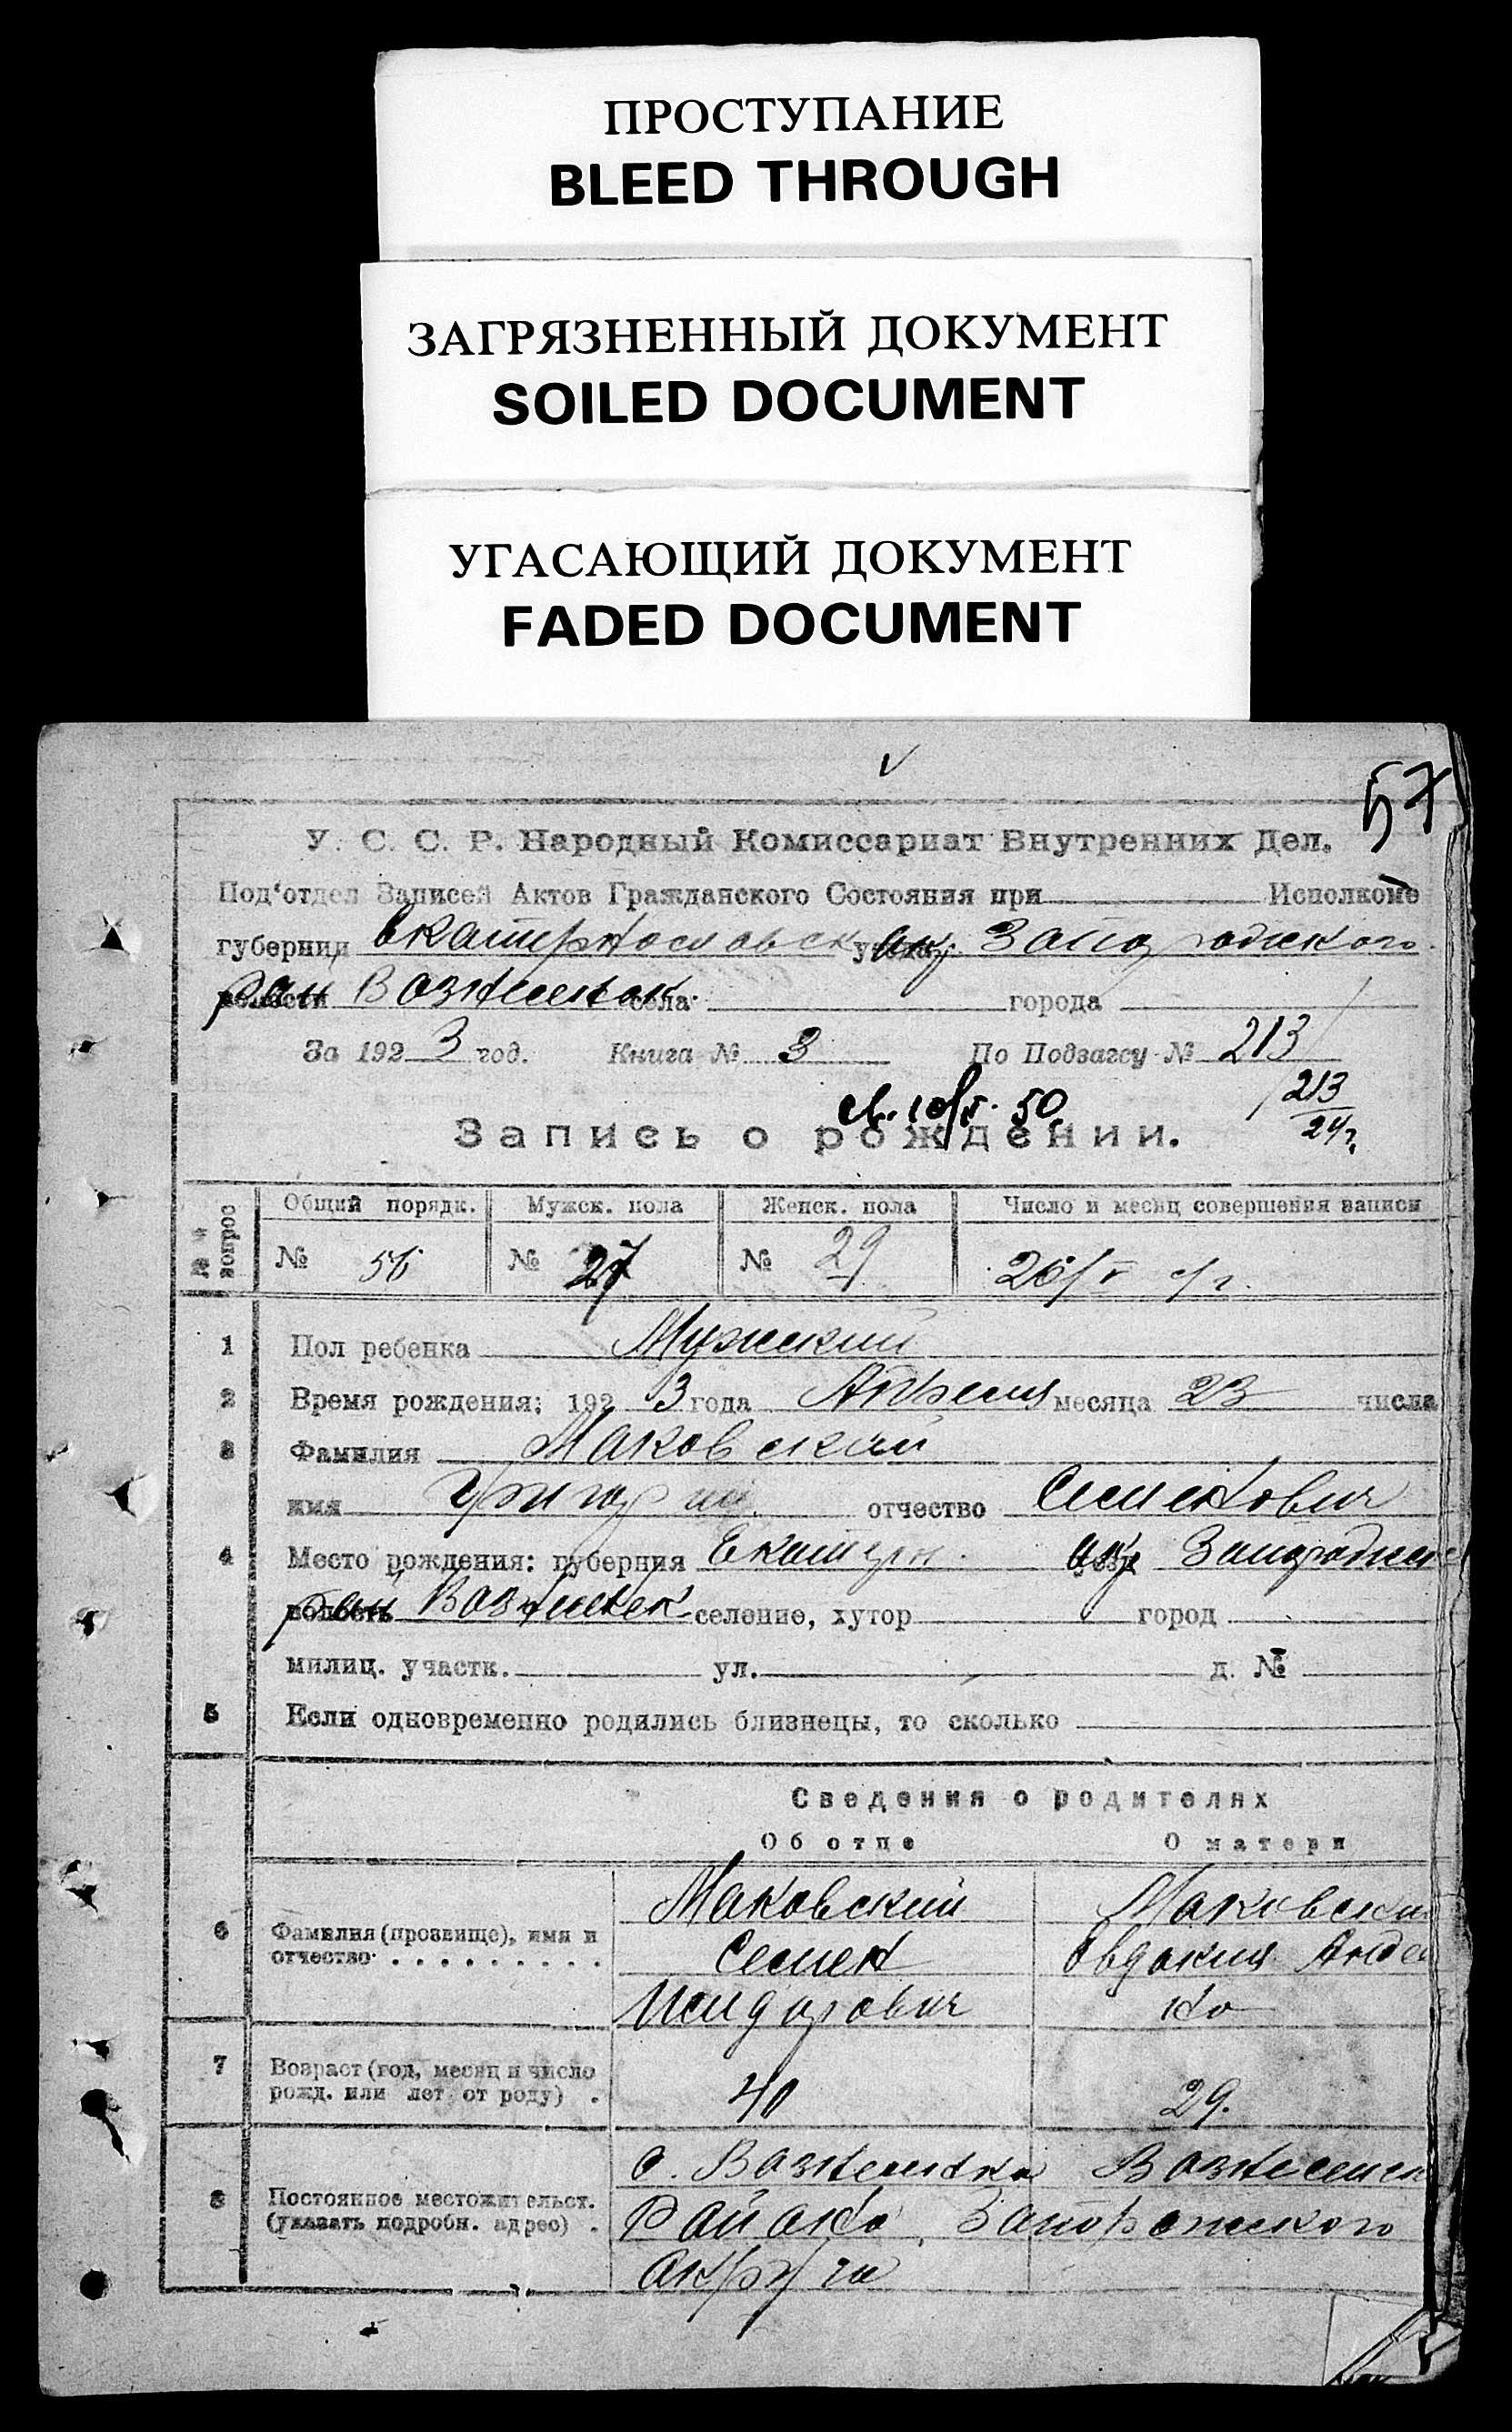 ПРОСТУПАНИЕ
BLEED THROUGH
ЗАГРЯЗНЕННЫЙ ДОКУМЕНТ
SOILED DOCUMENT
УГАСАЮЩИЙ ДОКУМЕНТ
FADED DOCUMENT
57
У. С. С. Р. Народный Комиссариат Внутренних Дел.
Под'отдел Записей Актов Гражданского Состояния при Исполкоме
губернии Екатеринославск окр. Запорожского
рай Вознесенск села города
За 1923 год. Книга № 3 По Подзагсу № 213
213
24г.
50
Запись о рождении.
№№ вопрос Общий порядк. Мужск. пола Женск. пола Число и месяц совершения записи
№ 56 № 27 № 29 26/V с/г.
1 Пол ребенка Мужский
2 Время рождения: 1923 года Апреля месяца 23 числа
3 Фамилия Маковский
имя Григорий отчество Семенович
4 Место рождения: губерния Екатерин. окр Запорожск
рай Вознесенск селение, хутор город
милиц. участк. ул. д. №
5 Если одновременно родились близнецы, то сколько
Сведения о родителях
Об отце О матери
6 Фамилия (прозвище), имя и отчество Маковский Маковская
Семен Евдокия Андее
Исидорович вна
7 Возраст (год, месяц и число рожд. или лет от роду) 40 29.
8 Постоянное местожительст. (указать подробн. адрес) с. Вознесенка Вознесенск
Района, Запорожского
округа